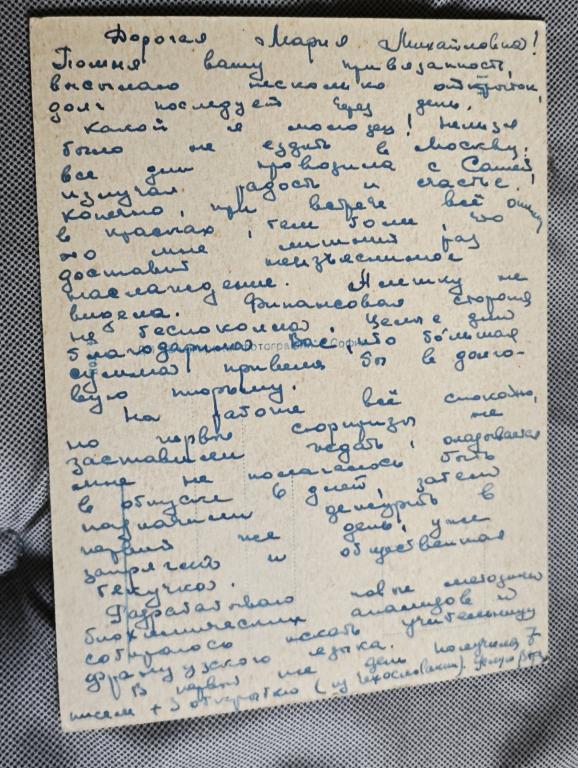 Дорогая Мария Михайловна!
Помня вашу привязанность,
высылаю несколько открыток,
долг последует через день.
Какой я молодец! Нельзя
было не ездить в Москву:
все дни проводила с Сашей
излучая радость и счастье!
Конечно, при встрече всё опишу
в красках, тем боли, что
это мне лишний раз
доставит неизъяснимое
наслаждение. Алешку не
видела. Финансовая сторона
не беспокоила, целые дни
благодарила Вас, ибо большая
сумма привела бы в долго-
вую тюрьму.
На работе всё спокойно,
но первые сюрпризы не
заставили ждать, оказывается
мне не полагалось быть
в отпуске 6 дней, затем
назначили дежурить в
первый же день, уже
запрягли и общественная
текучка.
Разрабатываю новые методики
биохимических анализов и
собираюсь искать учительницу
французского языка.
В первый же день получила 7
писем + 3 открытки (из Чехословакии).